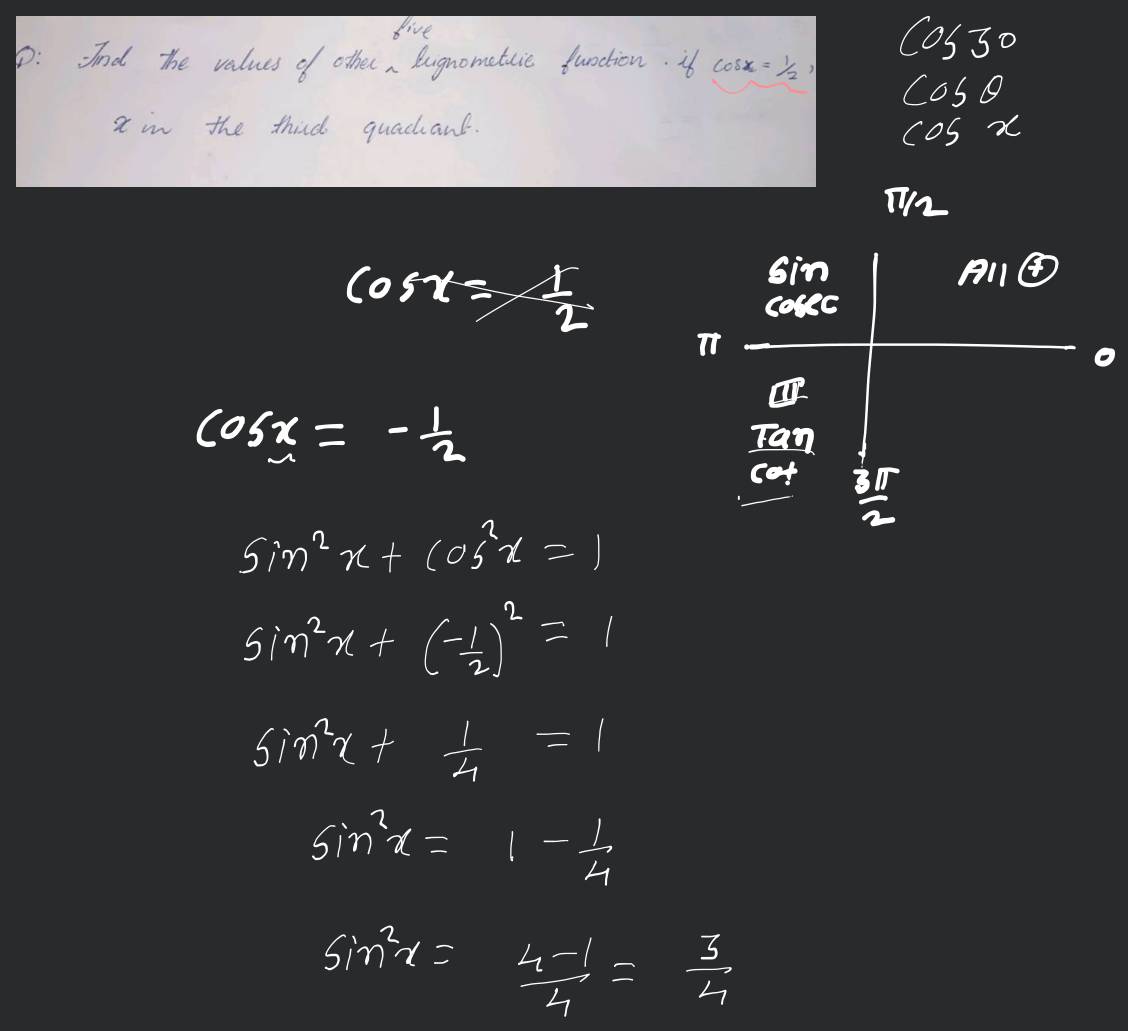 five
Q: Find the values of other ^ trignometric function. if cosx = 1/2,
x in the third quadrant.
Cos 30
Cos θ
cos x
π/2
Sin
cosec
All +
π
0
III
Tan
cot
3π/2
Cosx = 1/2
Cosx = -1/2
Sin²x + cos²x = 1
Sin²x + (-1/2)² = 1
Sin²x + 1/4 = 1
Sin²x = 1 - 1/4
Sin²x = 4-1/4 = 3/4